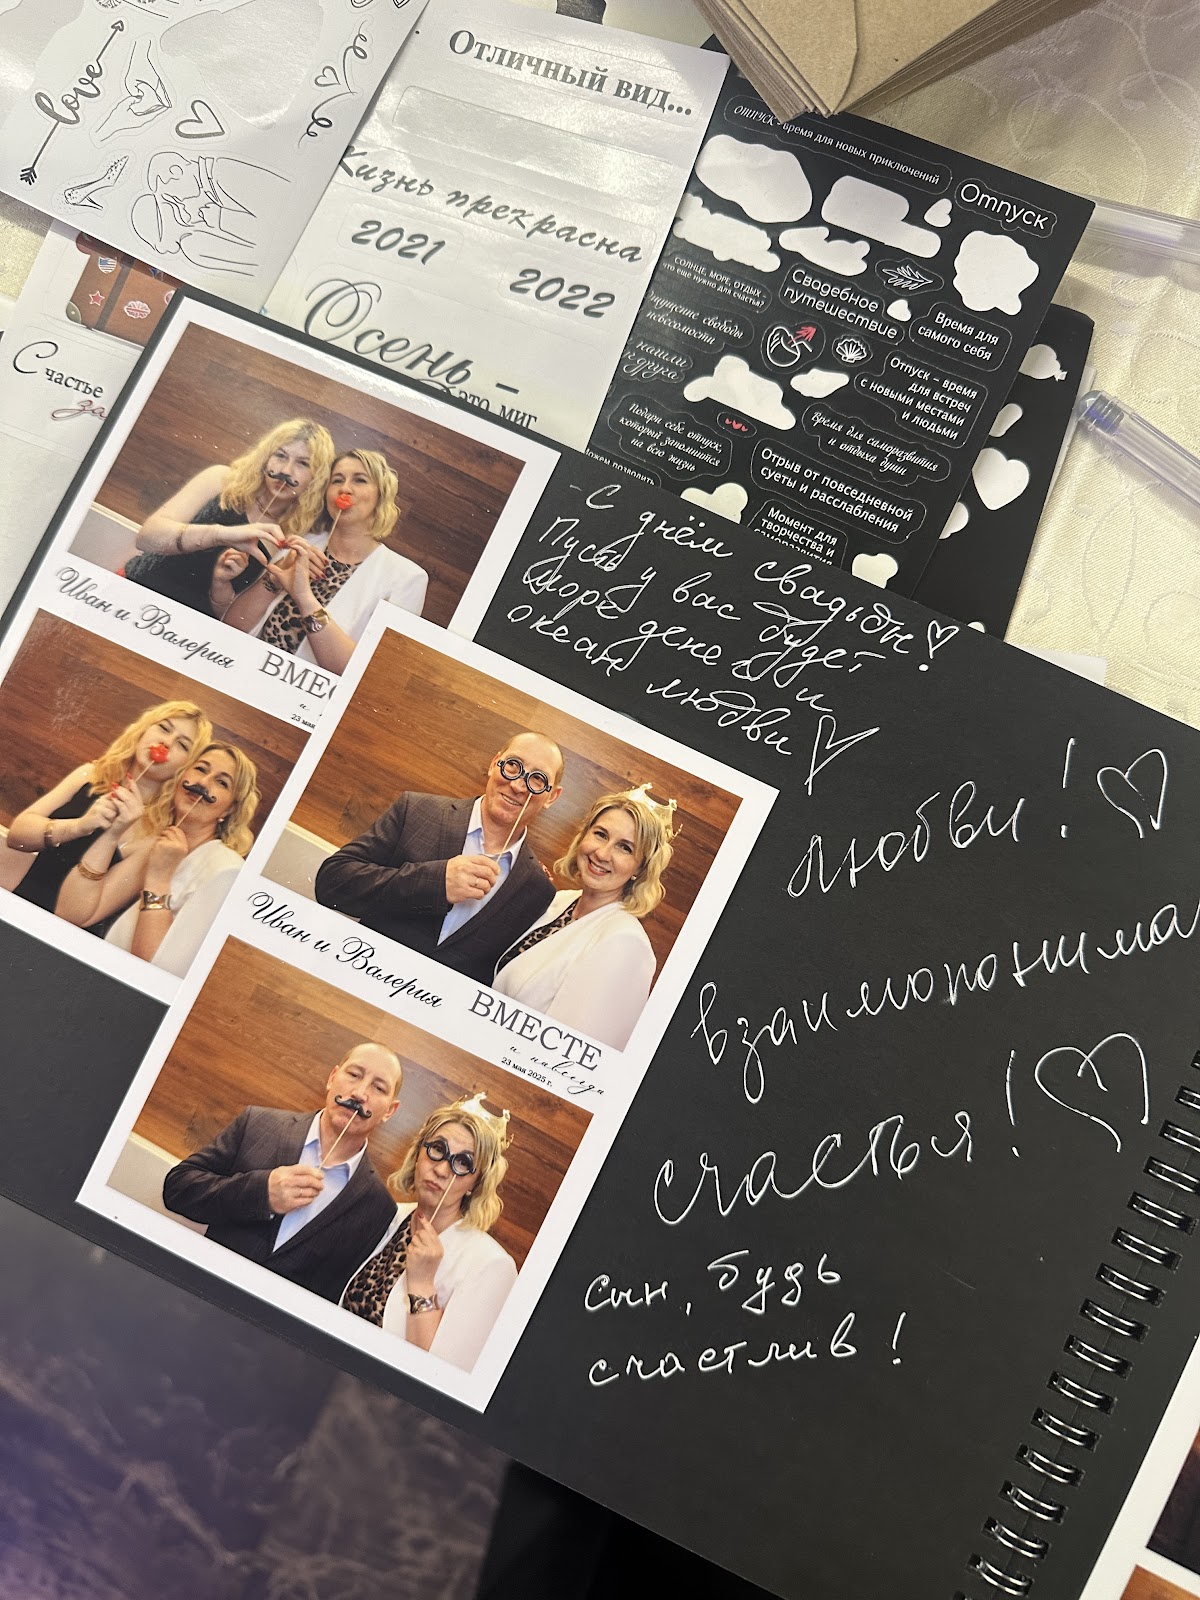 love
Отличный вид...
Жизнь прекрасна
2021
2022
Осень -
это миг
Счастье
за
ОТПУСК - время для новых приключений
Отпуск
СОЛНЦЕ, МОРЕ, ОТДЫХ -
что ещё нужно для счастья?
Свадебное
путешествие
Время для
самого себя
Ощущение свободы
невесомости
нашли
друга
Отпуск – время
для встреч
с новыми местами
и людьми
Подари себе отпуск,
который запомнится
на всю жизнь
Время для саморазвития
и отдыха души
Отрыв от повседневной
суеты и расслабления
Момент для
творчества и
саморазвития
- С днём свадьбы!
Пусть у вас будет
море денег и
океан любви
Любви!
взаимопонима
счастья!
сын, будь
счастлив!
Иван и Валерия
ВМЕС
и
23 мая
Иван и Валерия
ВМЕСТЕ
и навсегда
23 мая 2025 г.